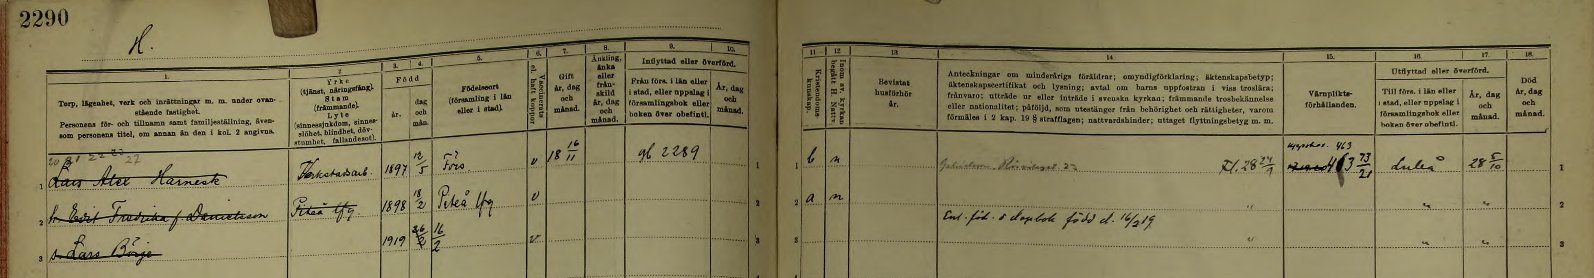 2290
H.
1.
2
3.
4.
5.
6.
7.
8.
9.
10.
Torp, lägenhet, verk och inrättningar m. m. under ovan-
stående fastighet.
Personens för- och tillnamn samt familjeställning, även-
som personens titel, om annan än den i kol. 2 angivna.
Yrke
(tjänst, näringsfång).
Stam
(främmande).
Lyte
(sinnessjukdom, sinnes-
slöhet, blindhet, döv-
stumhet, fallandesot).
Född
år.
dag
och
mån.
Födelseort
(församling i län
eller i stad).
Vaccinerats
el. haft koppor
Gift
år, dag
och
månad.
Änkling,
änka
eller
från-
skild
år, dag
och
månad.
Inflyttad eller överförd.
Från förs. i län eller
i stad, eller uppslag i
församlingsbok eller
boken över obefintl.
År, dag
och
månad.
11
12
13
14
15.
16.
17.
18.
Kristendoms-
kunskap.
Inom sv. kyrkan
begått H. Nattv.
Bevistat
husförhör
år.
Anteckningar om minderårigs föräldrar; omyndigförklaring; äktenskapsbetyg;
äktenskapscertifikat och lysning; avtal om barns uppfostran i viss troslära;
frånvaro; utträde ur eller inträde i svenska kyrkan; främmande trosbekännelse
eller nationalitet; påföljd, som utestänger från behörighet och rättigheter, varom
förmäles i 2 kap. 19 § strafflagen; nattvardshinder; uttaget flyttningsbetyg m. m.
Värnplikts-
förhållanden.
Utflyttad eller överförd.
Till förs. i län eller
i stad, eller uppslag i
församlingsbok eller
boken över obefintl.
År, dag
och
månad.
Död
år, dag
och
månad.
1 Lars Alex Harnesk 1897 12/5 Förs. v 18 16/11 gb 2289 1
2 h. Edit Fredrika f. Danielsson Piteå lfg 1898 18/2 Piteå lfg v 2
3 s. Lars Börje 1919 26/2 16/2 v 3
1 b n Fl. 28 463 73/21 Luleå 28 5/10 1
2 a n " " " 2
Enl. föd. o dopbok född d. 16/2 19
3 " " " 3